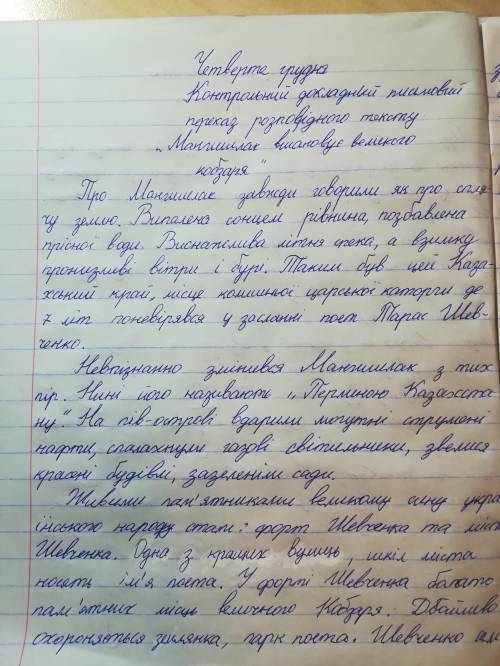 Четверте грудня
Контрольний докладний письмовий
переказ розповідного тексту
„Мангишлак вшановує великого
кобзаря"
Про Мангишлак завжди говорили як про спля-
чу землю. Випалена сонцем рівнина, позбавлена
прісної води. Виснажлива літня спека, а взимку
пронизливі вітри і бурі. Таким був цей Каза-
хський край, місце колишньої царської каторги де
7 літ поневірявся у засланні поет Тарас Шев-
ченко.
Невпізнанно змінився Мангишлак з тих
пір. Нині його називають „Перлиною Казахста
ну". На пів-острові вдарили могутні струмені
нафти, спалахнули газові світильники, звелися
красені будівлі, зазеленіли сади.
Живими пам'ятниками великому сину укра
їнською народу стали: форт Шевченка та міст
Шевченка. Одна з кращих вулиць, шкіл міста
носять ім'я поета. У форті Шевченка багато
пам'ятних місць величного Кобзаря. Дбайливо
охороняється землянка, парк поета. Шевченко